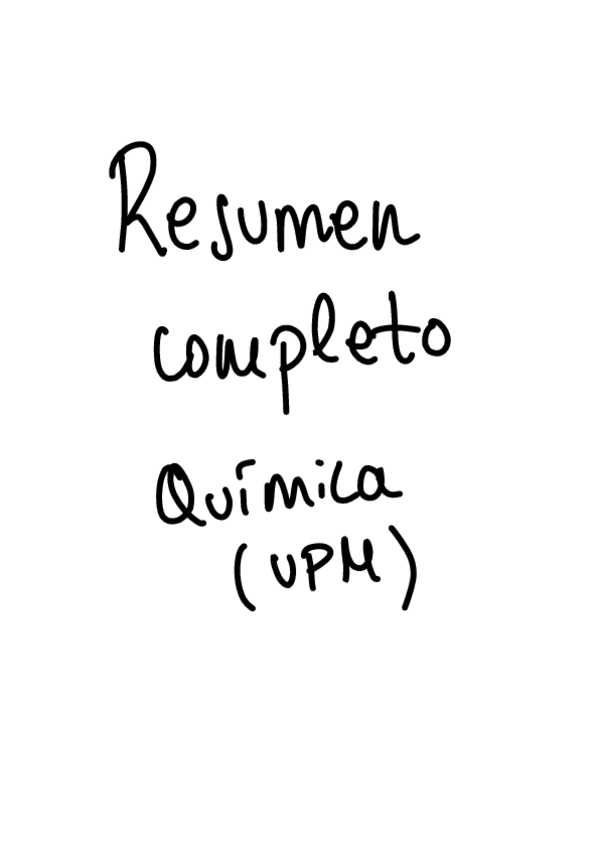 Resumen
completo
Química
(UPM)